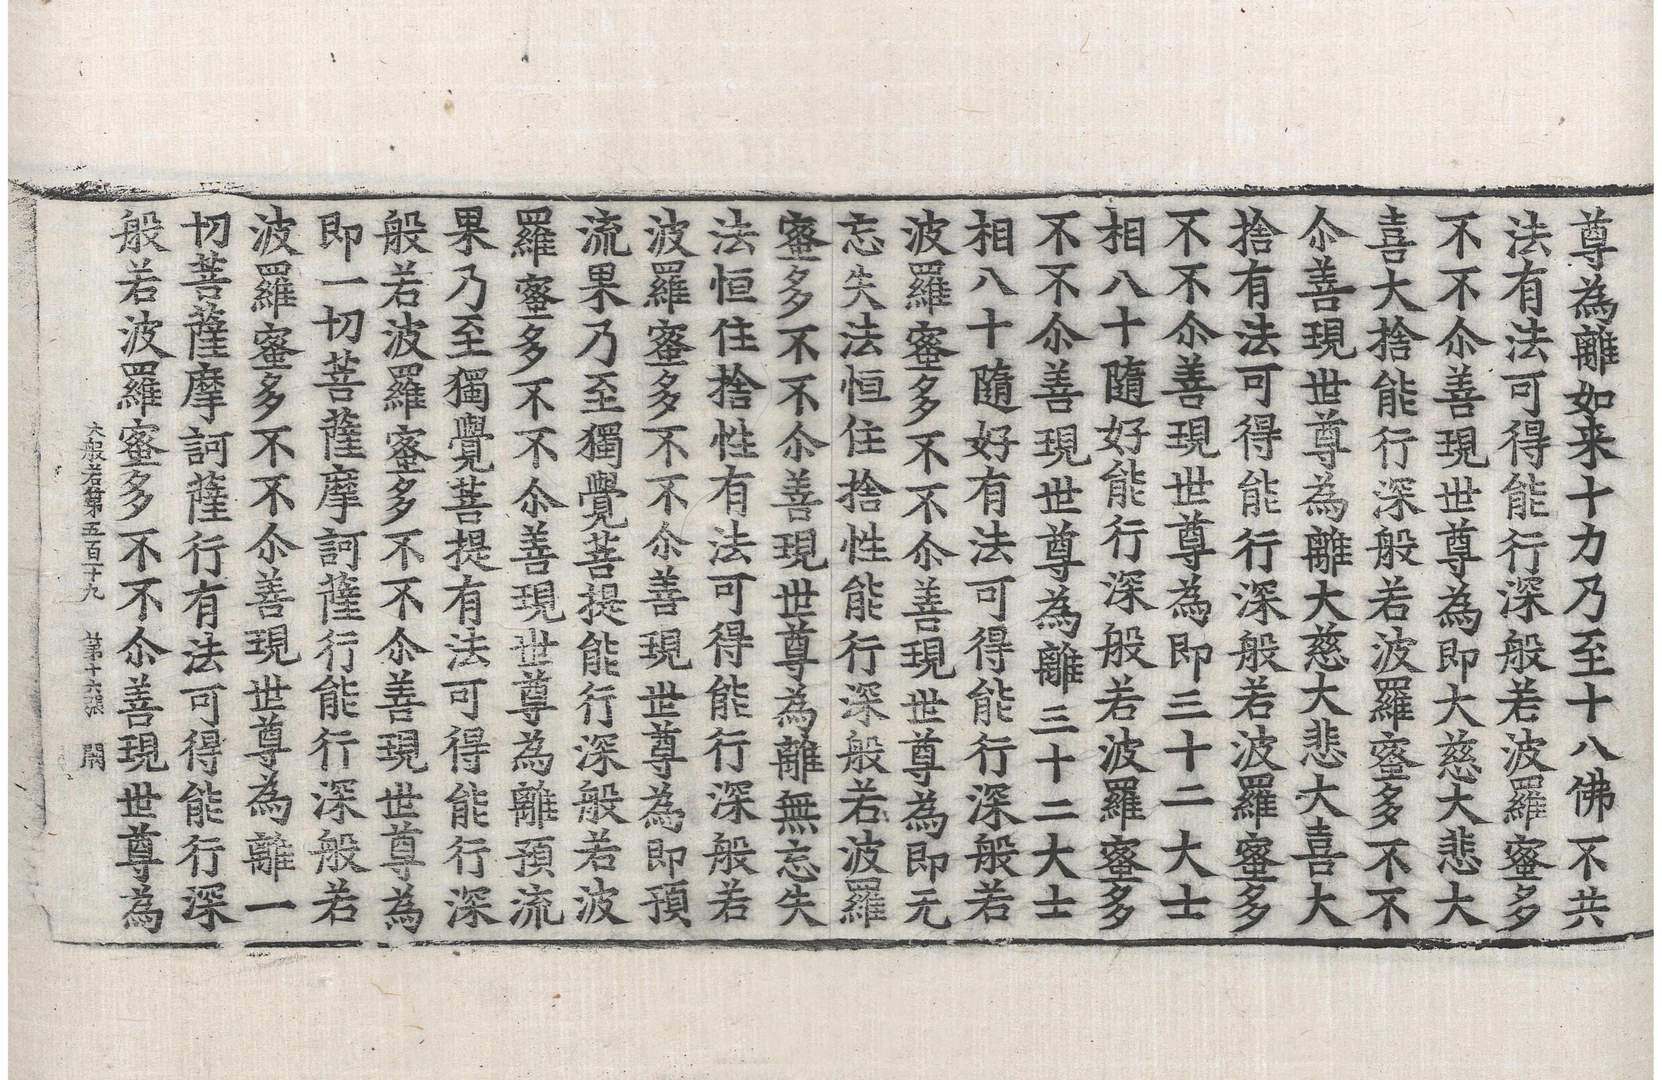 尊為離如来十力乃至十八佛不共
法有法可得能行深般若波羅蜜多
不不尒善現世尊為即大慈大悲大
喜大捨能行深般若波羅蜜多不不
尒善現世尊為離大慈大悲大喜大
捨有法可得能行深般若波羅蜜多
不不尒善現世尊為即三十二大士
相八十隨好能行深般若波羅蜜多
不不尒善現世尊為離三十二大士
相八十隨好有法可得能行深般若
波羅蜜多不不尒善現世尊為即无
忘失法恒住捨性能行深般若波羅
蜜多不不尒善現世尊為離無忘失
法恒住捨性有法可得能行深般若
波羅蜜多不不尒善現世尊為即預
流果乃至獨覺菩提能行深般若波
羅蜜多不不尒善現世尊為離預流
果乃至獨覺菩提有法可得能行深
般若波羅蜜多不不尒善現世尊為
即一切菩薩摩訶薩行能行深般若
波羅蜜多不不尒善現世尊為離一
切菩薩摩訶薩行有法可得能行深
般若波羅蜜多不不尒善現世尊為
大般若第五百十九 第十六張 闕